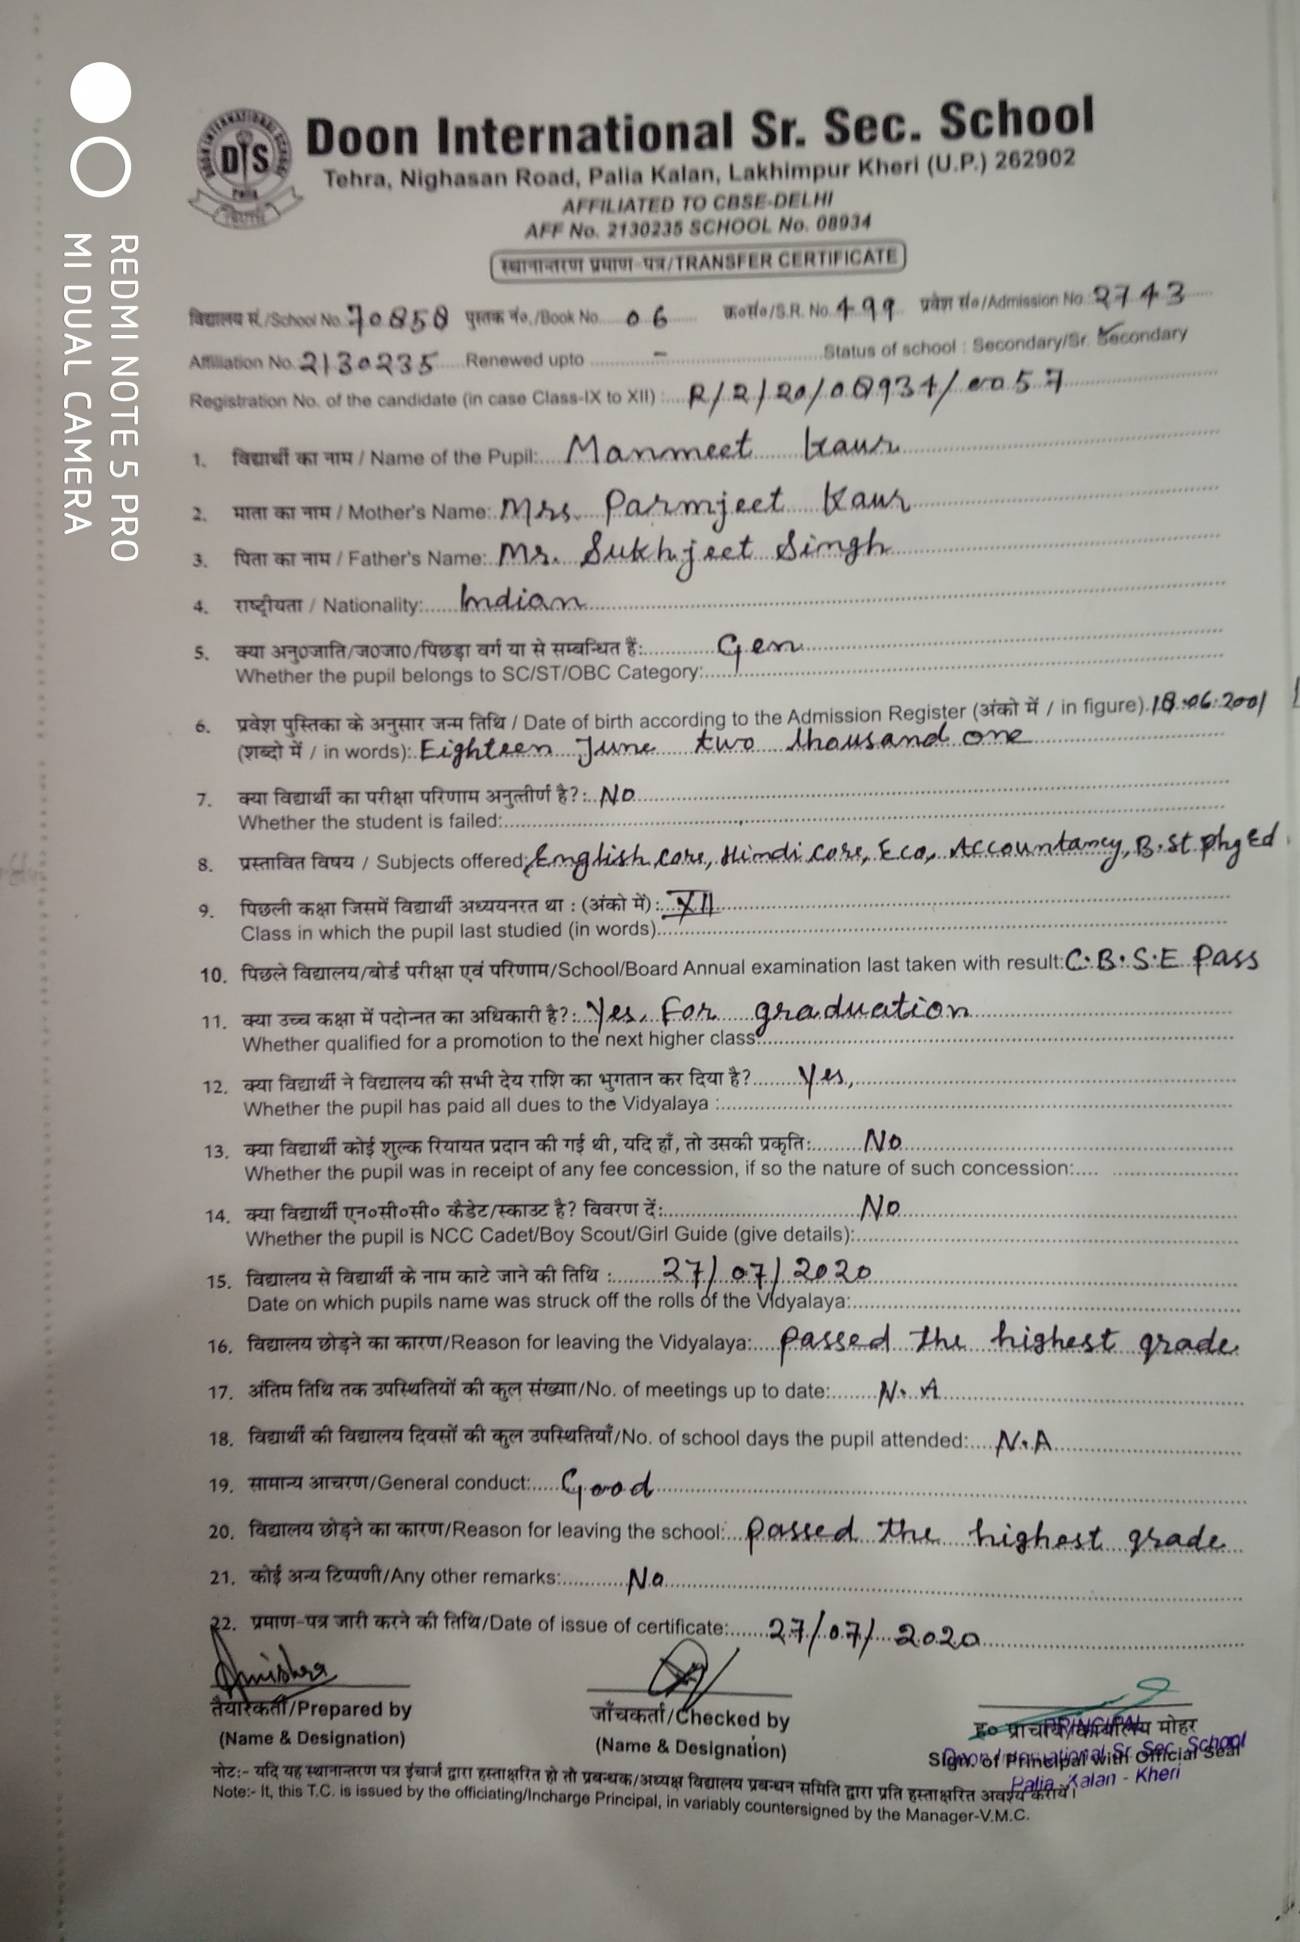 DOON INTERNATIONAL SCHOOL
DIS
Palia
Doon International Sr. Sec. School
Tehra, Nighasan Road, Palia Kalan, Lakhimpur Kheri (U.P.) 262902
AFFILIATED TO CBSE-DELHI
AFF No. 2130235 SCHOOL No. 08934
स्थानान्तरण प्रमाण-पत्र/TRANSFER CERTIFICATE
विद्यालय सं./School No. 70858 पुस्तक नं./Book No. 06 क्र०सं०/S.R. No. 499 प्रवेश सं०/Admission No. 2743
Affiliation No. 2130235 Renewed upto – Status of school : Secondary/Sr. Secondary
Registration No. of the candidate (in case Class-IX to XII) : R/2/20/08934/0057
1. विद्यार्थी का नाम / Name of the Pupil: Manmeet Kaur
2. माता का नाम / Mother's Name: Mrs. Parmjeet Kaur
3. पिता का नाम / Father's Name: Mr. Sukhjeet Singh
4. राष्ट्रीयता / Nationality: Indian
5. क्या अनु०जाति/ज०जा०/पिछड़ा वर्ग या से सम्बन्धित हैं: Gen
Whether the pupil belongs to SC/ST/OBC Category:
6. प्रवेश पुस्तिका के अनुसार जन्म तिथि / Date of birth according to the Admission Register (अंको में / in figure) 18.06.2001
(शब्दो में / in words): Eighteen June two thousand one
7. क्या विद्यार्थी का परीक्षा परिणाम अनुत्तीर्ण है?: No
Whether the student is failed:
8. प्रस्तावित विषय / Subjects offered: English core, Hindi core, Eco, Accountancy, B.St phy Ed
9. पिछली कक्षा जिसमें विद्यार्थी अध्ययनरत था : (अंको में) : XII
Class in which the pupil last studied (in words)
10. पिछले विद्यालय/बोर्ड परीक्षा एवं परिणाम/School/Board Annual examination last taken with result: C.B.S.E Pass
11. क्या उच्च कक्षा में पदोन्नत का अधिकारी है?: Yes, For graduation
Whether qualified for a promotion to the next higher class:
12. क्या विद्यार्थी ने विद्यालय की सभी देय राशि का भुगतान कर दिया है? Yes,
Whether the pupil has paid all dues to the Vidyalaya :
13. क्या विद्यार्थी कोई शुल्क रियायत प्रदान की गई थी, यदि हाँ, तो उसकी प्रकृति: No
Whether the pupil was in receipt of any fee concession, if so the nature of such concession:
14. क्या विद्यार्थी एन०सी०सी० कैडेट/स्काउट है? विवरण दें: No
Whether the pupil is NCC Cadet/Boy Scout/Girl Guide (give details):
15. विद्यालय से विद्यार्थी के नाम काटे जाने की तिथि : 27/07/2020
Date on which pupils name was struck off the rolls of the Vidyalaya:
16. विद्यालय छोड़ने का कारण/Reason for leaving the Vidyalaya: Passed the highest grade
17. अंतिम तिथि तक उपस्थितियों की कुल संख्या/No. of meetings up to date: N.A
18. विद्यार्थी की विद्यालय दिवसों की कुल उपस्थितियाँ/No. of school days the pupil attended: N.A
19. सामान्य आचरण/General conduct: Good
20. विद्यालय छोड़ने का कारण/Reason for leaving the school: Passed the highest grade
21. कोई अन्य टिप्पणी/Any other remarks: No
22. प्रमाण-पत्र जारी करने की तिथि/Date of issue of certificate: 27/07/2020
तैयारकर्ता/Prepared by
(Name & Designation)
जाँचकर्ता/Checked by
(Name & Designation)
ह० प्राचार्य/कार्यालय मोहर
Sign. of Principal with Official Seal
PRINCIPAL
Doon International Sr. Sec. School
Palia Kalan - Kheri
नोट:- यदि यह स्थानान्तरण पत्र इंचार्ज द्वारा हस्ताक्षरित हो तो प्रबन्धक/अध्यक्ष विद्यालय प्रबन्धन समिति द्वारा प्रति हस्ताक्षरित अवश्य करायें।
Note:- It, this T.C. is issued by the officiating/Incharge Principal, in variably countersigned by the Manager-V.M.C.
REDMI NOTE 5 PRO
MI DUAL CAMERA